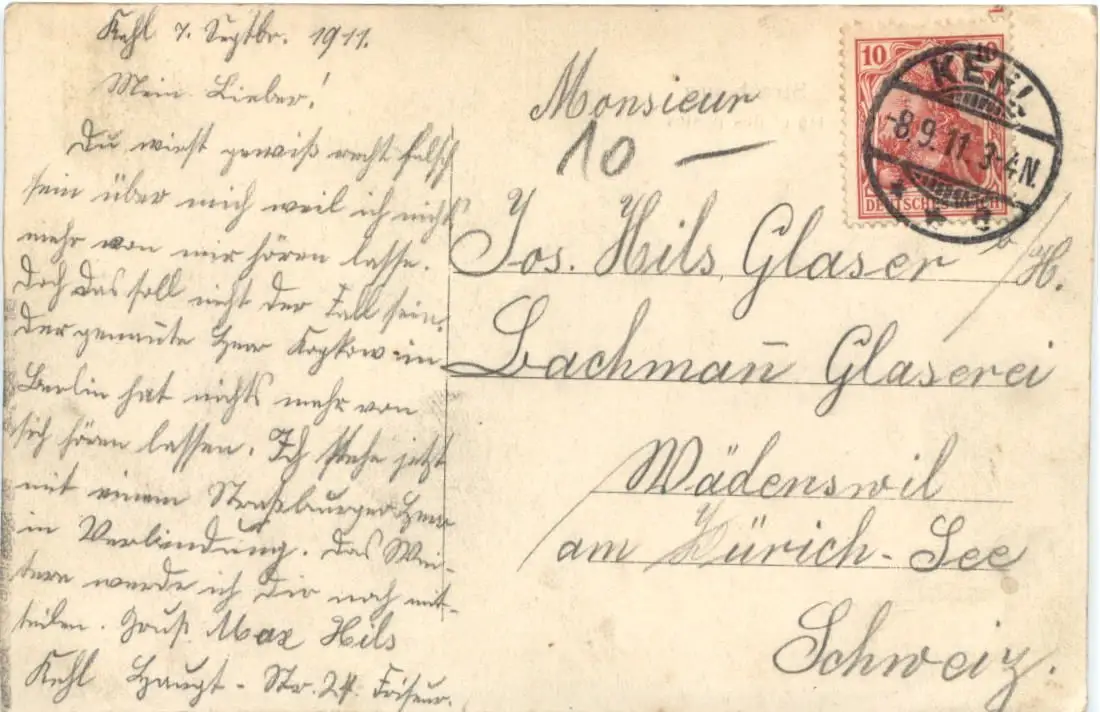 Kehl 7. Septbr. 1911.
Mein Lieber!
Du wirst gewiß recht falsch
sein über mich weil ich nichts
mehr von mir hören lasse.
Doch das soll nicht der Fall sein.
Der genannte Herr Kopkow in
Berlin hat nichts mehr von
sich hören lassen. Ich stehe jetzt
mit einem Straßburger Herr
in Verbindung. Das Wei-
tere werde ich Dir noch mit-
teilen. Gruß Max Hils
Kehl Haupt-Str. 24. Friseur.
Monsieur
10
Jos. Hils, Glaser b/H.
Bachmañ Glaserei
Wädenswil
am Zürich-See
Schweiz.
10 10
DEUTSCHES REICH
KEHL
-8.9.11.3-4N.